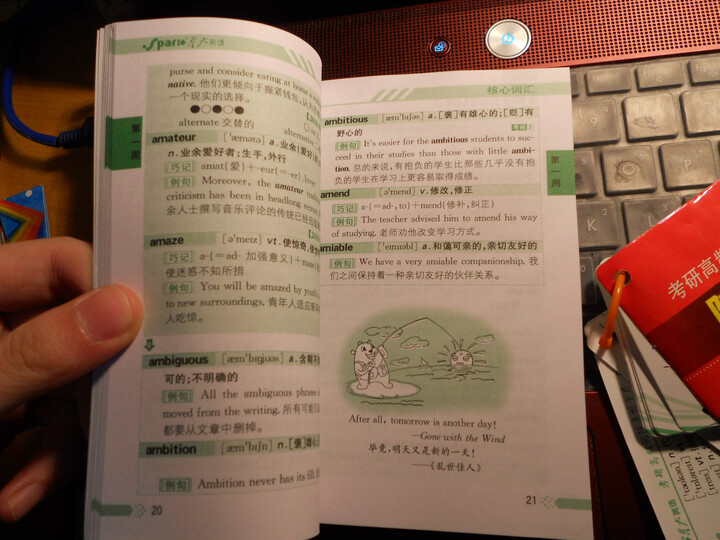 Spark 星火英语
purse and consider eating at home a
native. 他们更倾向于握紧钱包,
一个现实的选择。
alternate 交替的
alternative
第一周
amateur
['æmətə] a. 业余(爱好)
n. 业余爱好者;生手,外行
巧记 amat(爱)+-eur(=-er)
例句 Moreover, the amateur
criticism has been in headlong
余人士撰写音乐评论的传统已经
amaze
[ə'meɪz] vt. 使惊奇,
巧记 a-(=ad- 加强意义)+
使迷惑不知所措
例句 You will be amazed by
to new surroundings. 青年人适应
人吃惊。
ambiguous
[æm'bɪgjuəs] a. 含糊不
可的;不明确的
例句 All the ambiguous phrase
moved from the writing. 所有可能
都要从文章中删掉。
ambition
[æm'bɪʃn] n. [褒]雄心
例句 Ambition never has its fill.
20
核心词汇
ambitious
[æm'bɪʃəs] a. [褒]有雄心的;[贬]有
野心的
例句 It's easier for the ambitious students to suc-
ceed in their studies than those with little ambi-
tion. 总的来说,有抱负的学生比那些几乎没有抱
负的学生在学习上更容易取得成绩。
第一周
amend
[ə'mend] v. 修改,修正
巧记 a-(=ad-,to)+mend(修补,纠正)
例句 The teacher advised him to amend his way
of studying. 老师劝他改变学习方式。
amiable
['eɪmɪəbl] a. 和蔼可亲的,亲切友好的
例句 We have a very amiable companionship. 我
们之间保持着一种亲切友好的伙伴关系。
After all, tomorrow is another day!
—Gone with the Wind
毕竟,明天又是新的一天!
——《乱世佳人》
21
考研高频